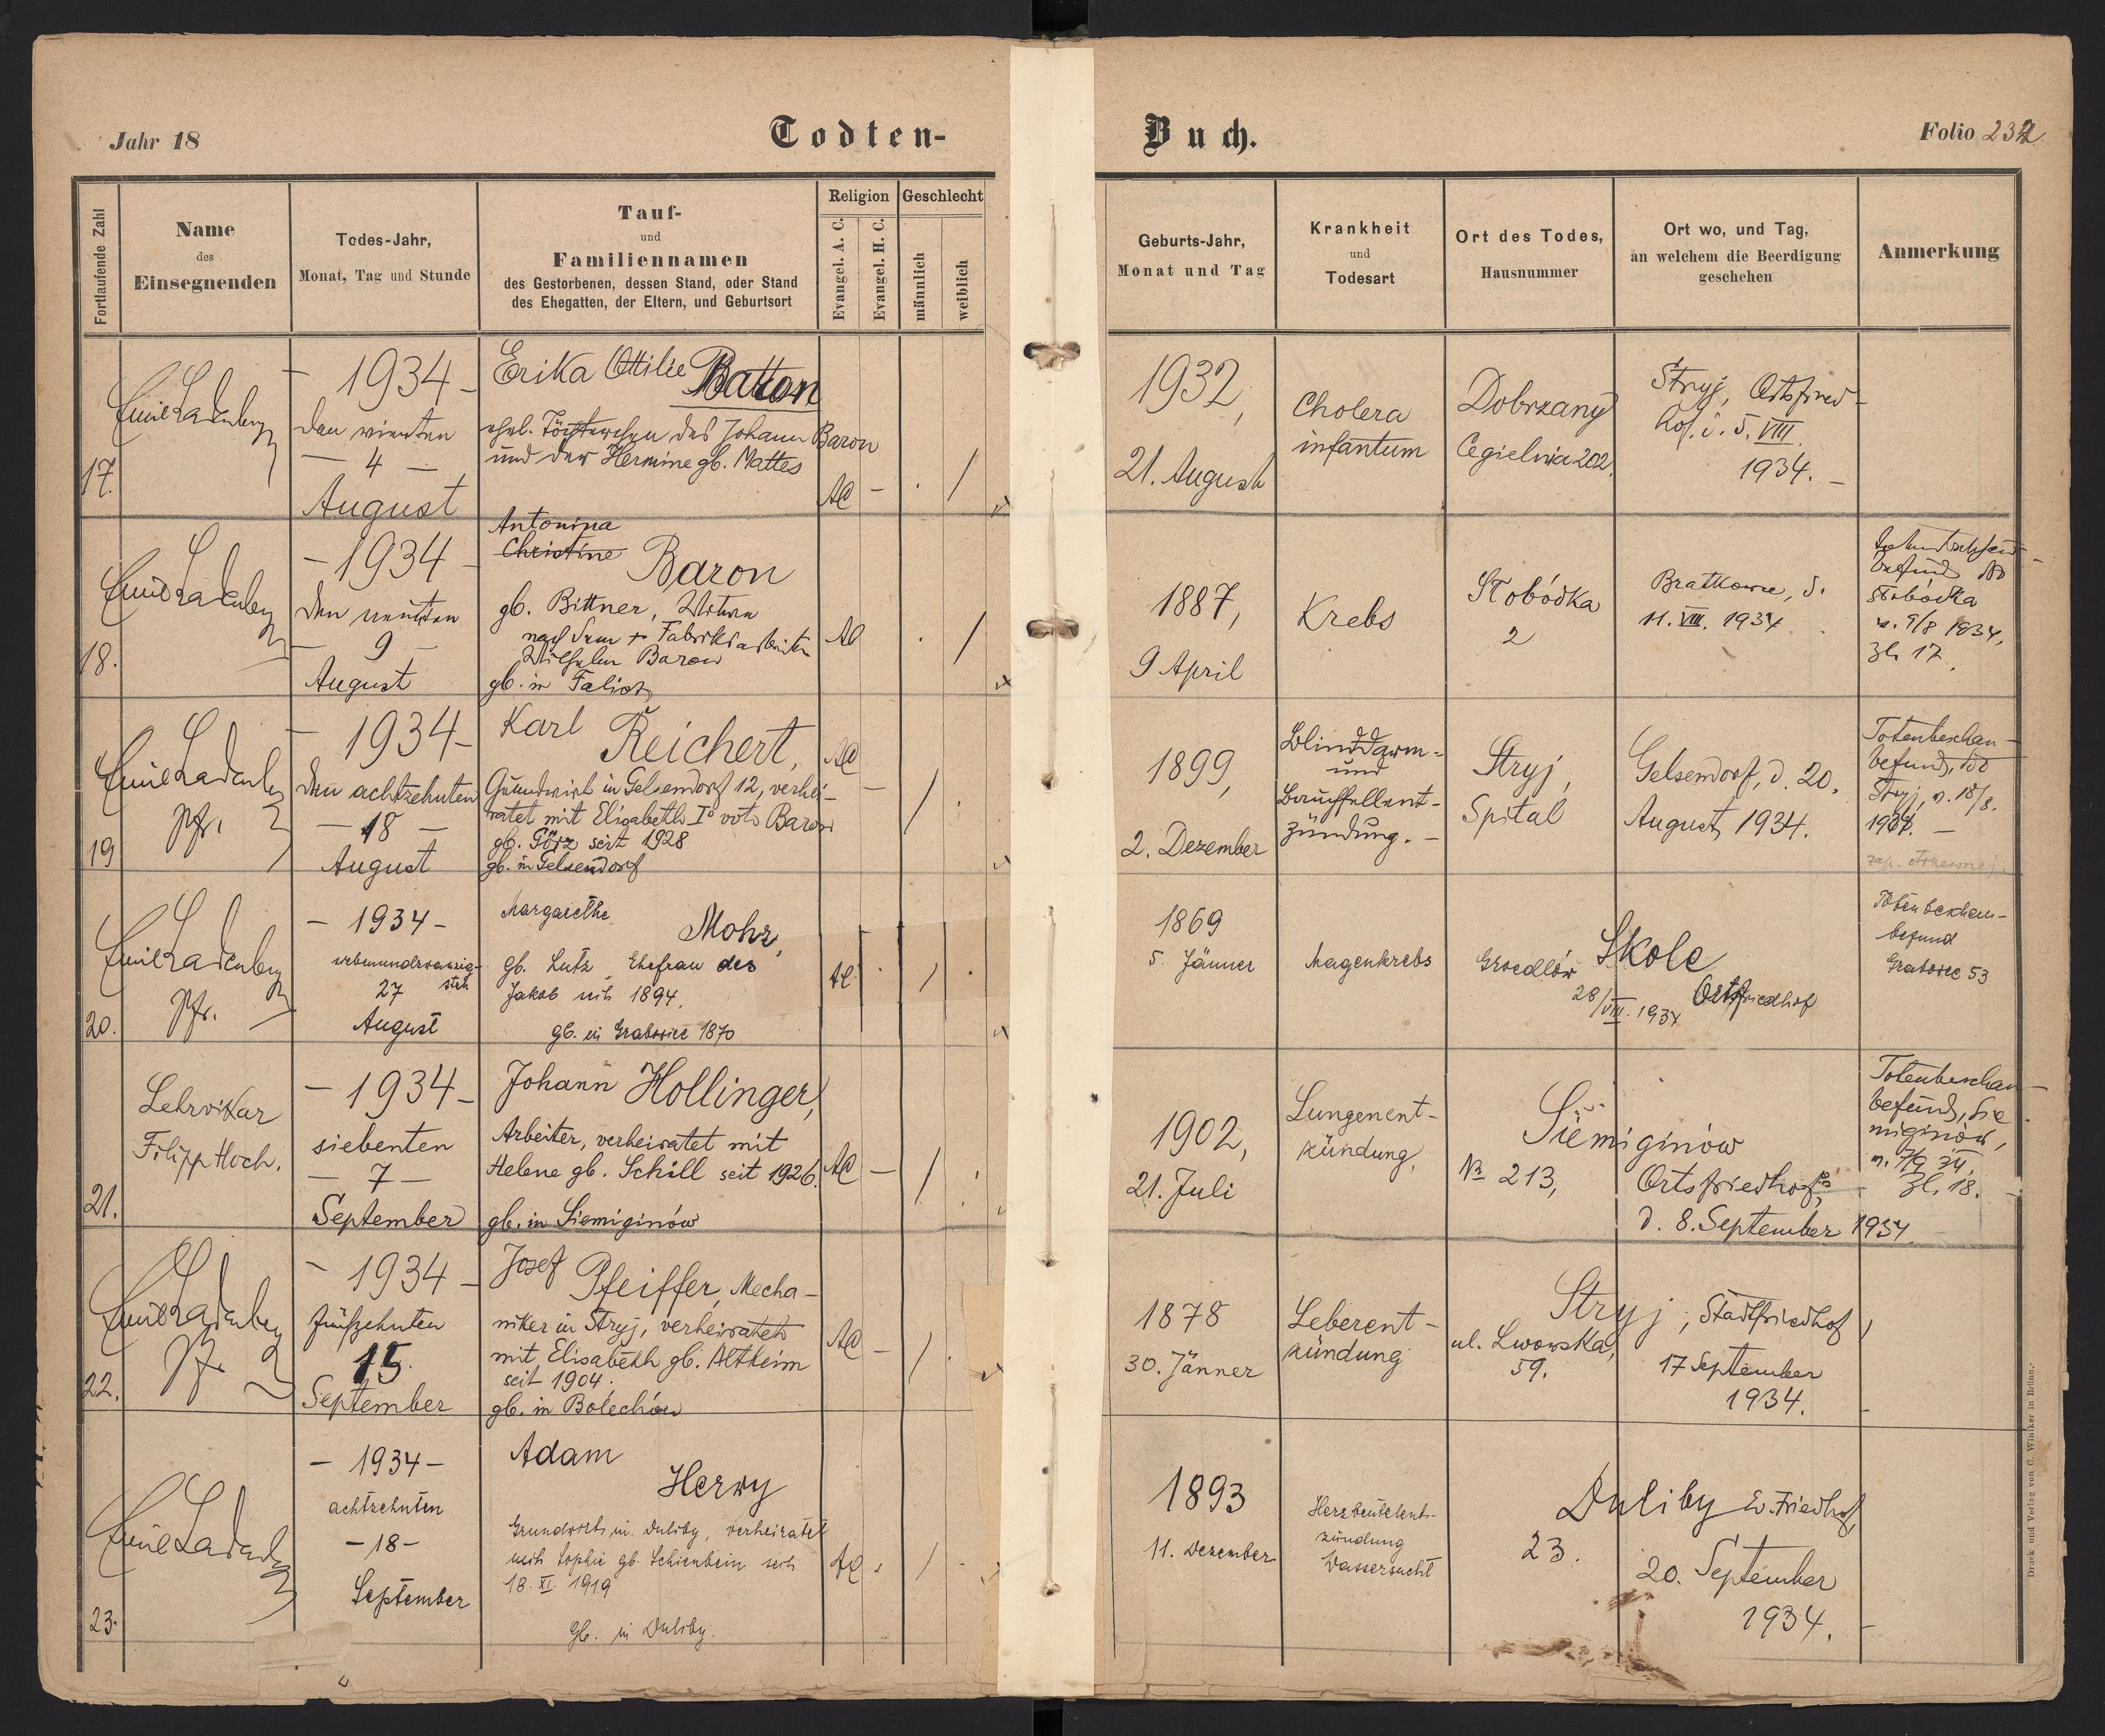 Jahr 18
Todten-
Buch.
Folio 232
Fortlaufende Zahl
Name
des
Einsegnenden
Todes-Jahr,
Monat, Tag und Stunde
Tauf-
und
Familiennamen
des Gestorbenen, dessen Stand, oder Stand
des Ehegatten, der Eltern, und Geburtsort
Religion
Evangel. A. C.
Evangel. H. C.
Geschlecht
männlich
weiblich
Geburts-Jahr,
Monat und Tag
Krankheit
und
Todesart
Ort des Todes,
Hausnummer
Ort wo, und Tag,
an welchem die Beerdigung
geschehen
Anmerkung
17.
Emil Ladenberger
- 1934 -
den vierten
- 4 -
August
Erika Ottilie Baron
ehel. Töchterchen des Johann Baron
und der Hermine gb. Mattes
AC -
. /
1932,
21. August
Cholera
infantum
Dobrzany
Cegielnia 202.
Stryj, Ortsfried-
hof. d. 5. VIII.
1934. -
18.
Emil Ladenberger
- 1934 -
den neunten
- 9 -
August
Antonina
Christine Baron
gb. Bittner, Witwe
nach dem + Fabriksarbeiter
Wilhelm Baron
gb. in
AC
. /
1887,
9 April
Krebs
Słobódka
2
Bratkowce, d.
11. VIII. 1934
Słobódka
v. 9/8 1934,
Zl. 17.
19
Emil Ladenberger
Pfr.
- 1934 -
den achtzehnten
- 18 -
August
Karl Reichert,
Grundwirt in Gelsendorf 12, verhei-
ratet mit Elisabeth Io voto Baron
gb. Görz seit 1928
gb. in Gelsendorf
AC -
/ .
1899,
2. Dezember
Blinddarm-
und
Bauchfellent-
zündung. -
Stryj,
Spital
Gelsendorf, d. 20.
August 1934.
Totenbeschau-
befund, dto
Stryj, v. 18/8.
1934. -
20.
Emil Ladenberger
Pfr.
- 1934 -
siebenundzwanzig-
27 sten
August
Margarethe
Mohr,
gb. Lutz, Ehefrau des
Jakob seit 1894.
gb. in Grabowiec 1870
AC .
/ .
1869
5. Jänner
Magenkrebs
Groedlów
Skole
28/VIII. 1934 Ortsfriedhof
Totenbeschau-
befund
Grabowiec 53
21.
Lehrvikar
Filipp Hoch.
- 1934 -
siebenten
- 7 -
September
Johann Hollinger,
Arbeiter, verheiratet mit
Helene gb. Schill seit 1926.
gb. in Siemiginów
AC -
/ .
1902,
21. Juli
Lungenent-
zündung.
Siemiginów
No 213,
Ortsfriedhof,
d. 8. September 1934.
Totenbeschau-
befund, Sie
miginów,
v. 7/9 34,
Zl. 18. -
22.
Emil Ladenberger
Pfr
- 1934 -
fünfzehnten
15.
September
Josef Pfeiffer, Mecha-
niker in Stryj, verheiratet
mit Elisabeth gb. Altheim
seit 1904.
gb. in Bolechów
AC -
/ .
1878
30. Jänner
Leberent-
zündung
Stryj, Stadtfriedhof,
ul. Lwowska,
59.
17 September
1934.
23.
Emil Ladenberger
- 1934 -
achtzehnten
- 18 -
September
Adam
Herwy
Grundwirt in Duliby, verheiratet
mit Sophie gb. Schienbein seit
18. XI. 1919
gb. in Duliby.
AC .
/ .
1893
11. Dezember
Herzbeutelent-
zündung
Wassersucht
Duliby Ev. Friedhof,
23.
20. September
1934.
Druck und Verlag von C. Winiker in Brünn.